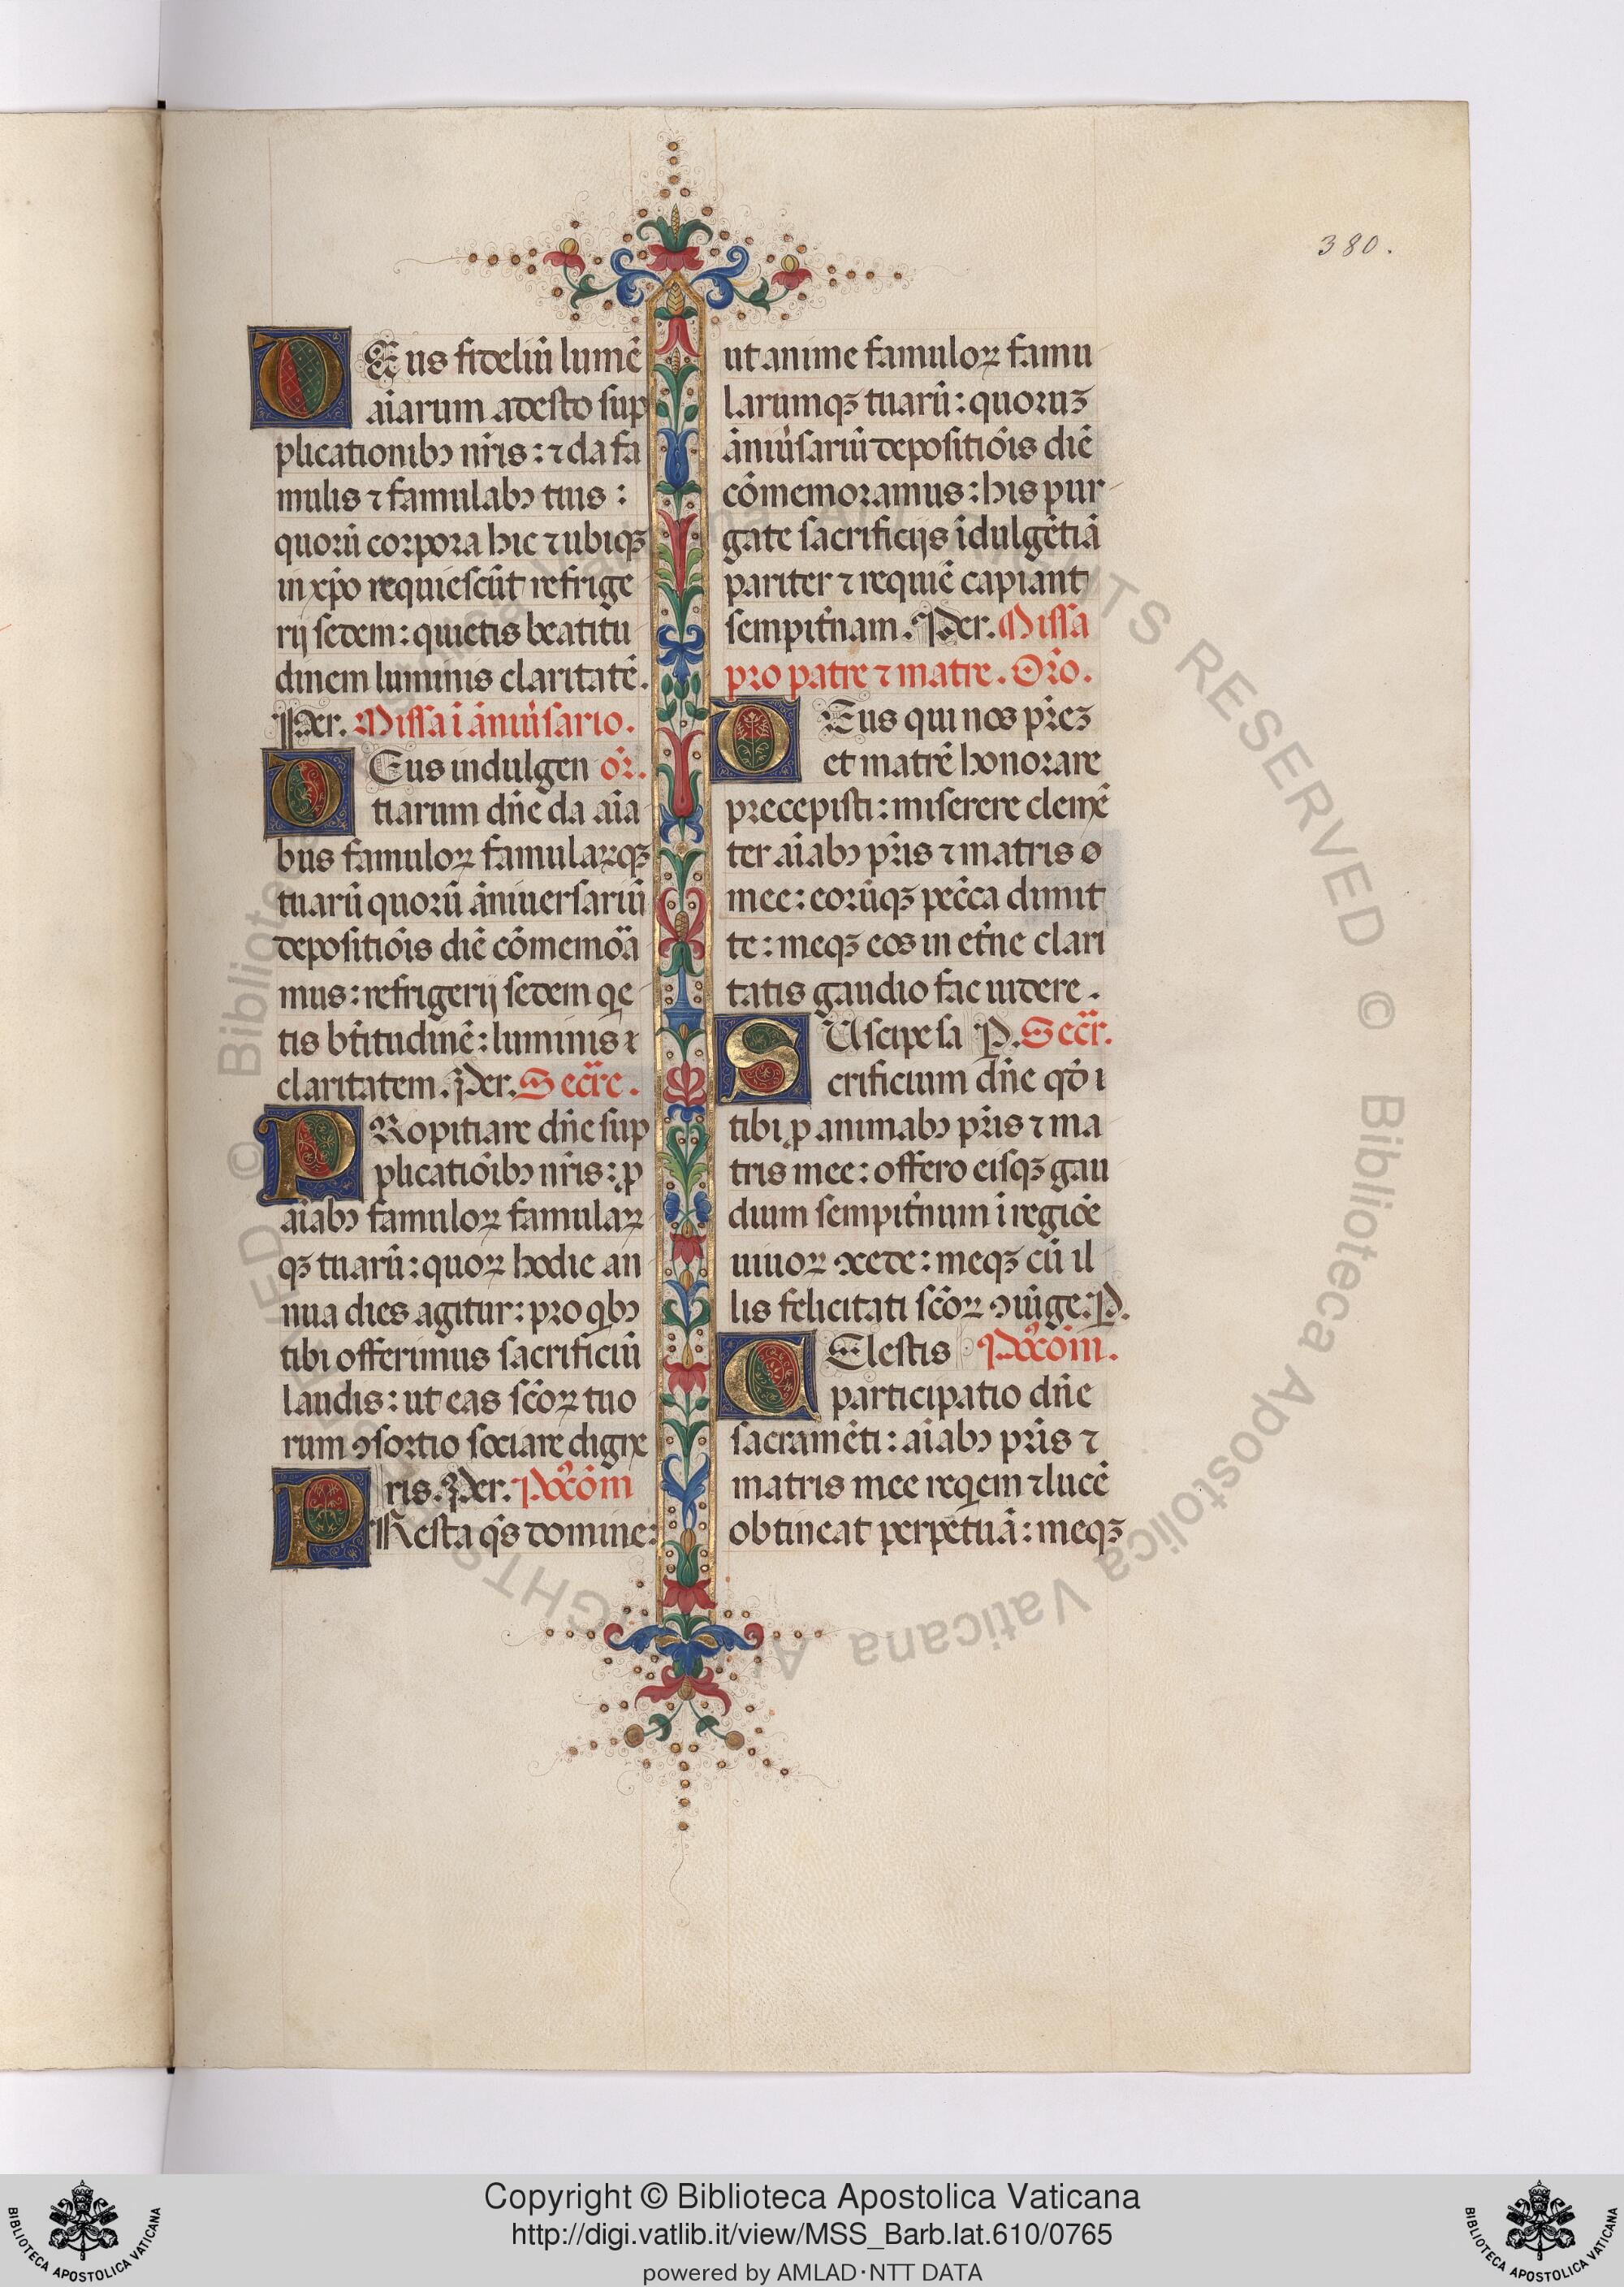 380.
DEus fideliū lumē
aīarum adesto sup
plicationibꝰ nr̄is: ⁊ da fa
mulis ⁊ famulabꝰ tuis:
quorū corpora hic ⁊ ubiqꝫ
in xp̄o requiescūt refrige
rij sedem: quietis beatitu
dinem luminis claritatē.
Per. Missa ī āniu̓sario.
DEus indulgen or̄.
tiarum dn̄e da aīa
bus famuloꝝ famulaꝝqꝫ
tuarū quorū āniuersariū
depositiōis diē cōmemor̄a
mus: refrigerij sedem qͥe
tis bt̄itudinē: luminis ⁊
claritatem. Per. Secr̄e.
PRopitiare dn̄e sup
plicatiōibꝰ nr̄is: ꝓ
aīabꝰ famuloꝝ famulaꝝ
qꝫ tuarū: quoꝝ hodie an
nua dies agitur: pro qͥbꝰ
tibi offerimus sacrificiū
laudis: ut eas sc̄oꝝ tuo
rum ꝯsortio sociare digne
ris. Per. Poˢcōm
PResta qs̄ domine:
ut anime famuloꝝ famu
larumqꝫ tuarū: quoruꝫ
āniu̓sariū depositiōis diē
cōmemoramus: his pur
gate sacrificijs īdulgētiā
pariter ⁊ requiē capiant
sempit̓nam. Per. Missa
pro patre ⁊ matre. Oro̅.
DEus qui nos pr̄eꝫ
et matrē honorare
precepisti: miserere clemē
ter aīabꝰ pr̄is ⁊ matris
mee: eorūqꝫ pecc̄a dimit
te: meqꝫ eos in et̓ne clari
tatis gaudio fac uidere.
SUscipe sa P. Secr̄.
crificium dn̄e qō i
tibi ꝓ animabꝰ pr̄is ⁊ ma
tris mee: offero eisqꝫ gau
dium sempit̓num ī regiōe
uiuoꝝ ꝯcede: meqꝫ cū il
lis felicitati sc̄oꝝ ꝯiūge. P.
CElestis Poˢcōm.
participatio dn̄e
sacramēti: aīabꝰ pr̄is ⁊
matris mee reqͥem ⁊ lucē
obtineat perpetuā: meqꝫ
© Biblioteca Apostolica Vaticana ALL RIGHTS RESERVED
Copyright © Biblioteca Apostolica Vaticana
http://digi.vatlib.it/view/MSS_Barb.lat.610/0765
powered by AMLAD·NTT DATA
BIBLIOTECA APOSTOLICA VATICANA
BIBLIOTECA APOSTOLICA VATICANA